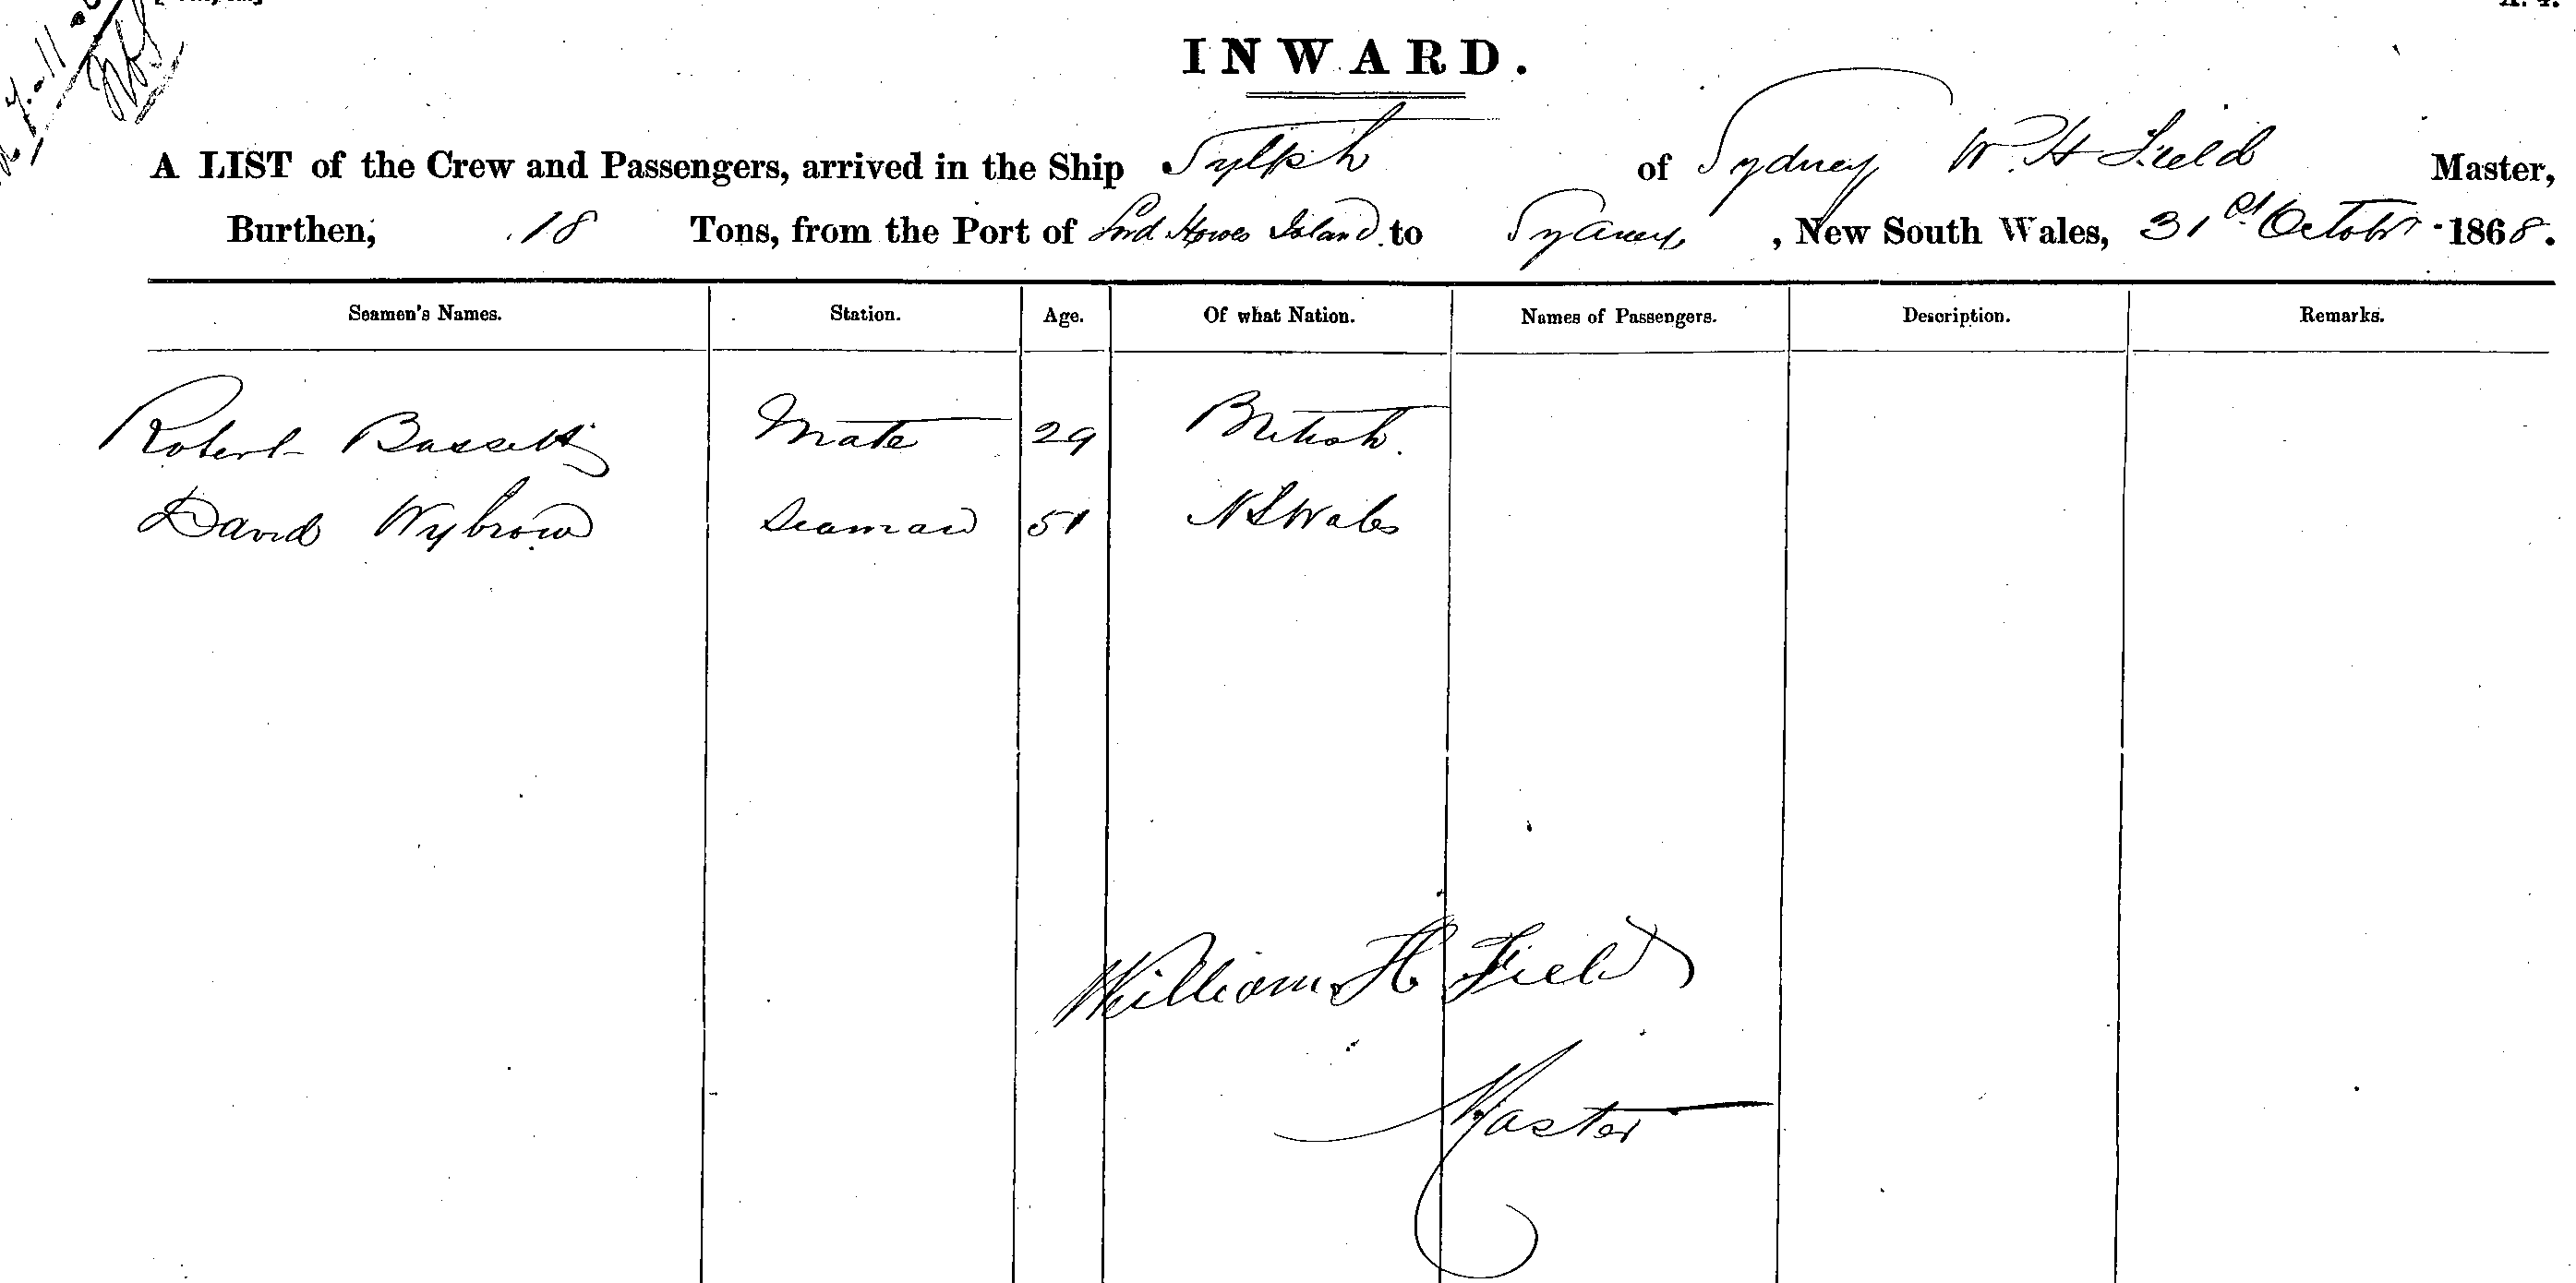 INWARD.
A LIST of the Crew and Passengers, arrived in the Ship Sylph of Sydney W. H Field Master,
Burthen, 18 Tons, from the Port of Lord Howes Island to Sydney, New South Wales, 31st October 1868.
Seamen's Names. Station. Age. Of what Nation. Names of Passengers. Description. Remarks.
Robert Bassett Mate 29 British.
David Wybrow Seaman 51 N S Wales
William H Field
Master